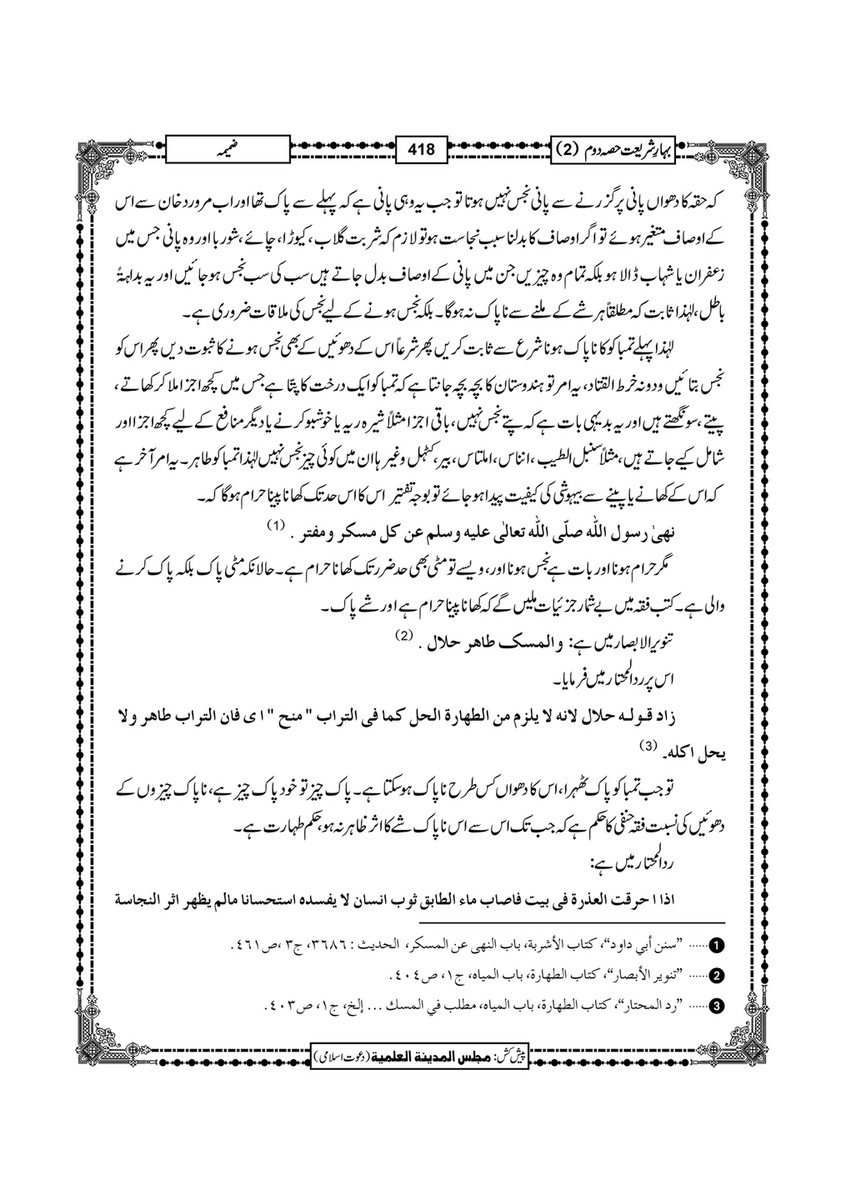 بہارِ شریعت حصہ دوم (2)
418
ضمیمہ
کہ حقہ کا دھواں پانی پر گزرنے سے پانی نجس نہیں ہوتا تو جب یہ وہی پانی ہے کہ پہلے سے پاک تھا اور اب مرور دخان سے اس
کے اوصاف متغیر ہوئے تو اگر اوصاف کا بدلنا سبب نجاست ہو تو لازم کہ شربت گلاب، کیوڑا، چائے، شوربا اور وہ پانی جس میں
زعفران یا شہاب ڈالا ہو بلکہ تمام وہ چیزیں جن میں پانی کے اوصاف بدل جاتے ہیں سب کی سب نجس ہو جائیں اور یہ بداہۃً
باطل، لہٰذا ثابت کہ مطلقاً ہر شے کے ملنے سے ناپاک نہ ہوگا۔ بلکہ نجس ہونے کے لیے نجس کی ملاقات ضروری ہے۔
لہٰذا پہلے تمباکو کا ناپاک ہونا شرع سے ثابت کریں پھر شرعاً اس کے دھوئیں کے بھی نجس ہونے کا ثبوت دیں پھر اس کو
نجس بتائیں ودونہ خرط القتاد، یہ امر تو ہندوستان کا بچہ بچہ جانتا ہے کہ تمباکو ایک درخت کا پتّا ہے جس میں کچھ اجزا ملا کر کھاتے،
پیتے، سونگھتے ہیں اور یہ بدیہی بات ہے کہ پتے نجس نہیں، باقی اجزا مثلاً شیرہ ریہ یا خوشبو کرنے یا دیگر منافع کے لیے کچھ اجزا اور
شامل کیے جاتے ہیں، مثلاً سنبل الطیب، انناس، املتاس، بیر، کٹہل وغیرہا ان میں کوئی چیز نجس نہیں لہٰذا تمباکو طاہر۔ یہ امر آخر ہے
کہ اس کے کھانے یا پینے سے بیہوشی کی کیفیت پیدا ہو جائے تو بوجہ تفتیر اس کا اس حد تک کھانا پینا حرام ہوگا کہ۔
نهیٰ رسول الله صلّی الله تعالٰی علیه وسلم عن کل مسکر ومفتر . (1)
مگر حرام ہونا اور بات ہے نجس ہونا اور، ویسے تو مٹی بھی حد ضرر تک کھانا حرام ہے۔ حالانکہ مٹی پاک بلکہ پاک کرنے
والی ہے۔ کتب فقہ میں بے شمار جزئیات ملیں گے کہ کھانا پینا حرام ہے اور شے پاک۔
تنویر الابصار میں ہے: والمسک طاهر حلال . (2)
اس پر ردالمحتار میں فرمایا۔
زاد قوله حلال لانه لا یلزم من الطهارة الحل کما فی التراب "منح" ا ی فان التراب طاهر ولا
یحل اکله۔ (3)
تو جب تمباکو پاک ٹھہرا، اس کا دھواں کس طرح ناپاک ہو سکتا ہے۔ پاک چیز تو خود پاک چیز ہے، ناپاک چیزوں کے
دھوئیں کی نسبت فقہ حنفی کا حکم ہے کہ جب تک اس سے اس ناپاک شے کا اثر ظاہر نہ ہو، حکم طہارت ہے۔
ردالمحتار میں ہے:
اذا احرقت العذرة فی بیت فاصاب ماء الطابق ثوب انسان لا یفسده استحسانا مالم یظهر اثر النجاسة
1 ...... "سنن أبي داود"، کتاب الأشربة، باب النهی عن المسکر، الحدیث : ۳۶۸۶، ج۳، ص۴۶۱.
2 ...... "تنویر الأبصار"، کتاب الطهارة، باب المیاه، ج۱، ص۴۰۴.
3 ...... "رد المحتار"، کتاب الطهارة، باب المیاه، مطلب في المسک ... إلخ، ج۱، ص۴۰۳.
پیش کش: مجلس المدینة العلمیة (دعوت اسلامی)